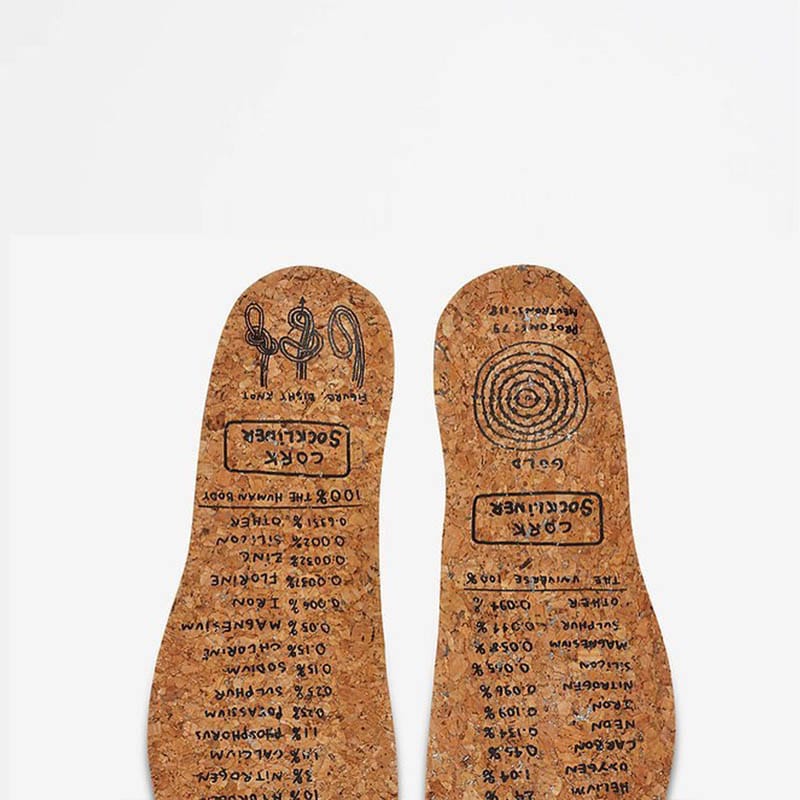 HELIUM 24 %
OXYGEN 1.04 %
CARBON 0.45 %
NEON 0.134 %
IRON 0.109 %
NITROGEN 0.096 %
SILICON 0.065 %
MAGNESIUM 0.058 %
SULPHUR 0.044 %
OTHER 0.094 %
THE UNIVERSE 100%
CORK
SOCKLINER
GOLD
PROTONS: 79
NEUTRONS: 118
10% HYDROGEN
3% NITROGEN
CALCIUM
1.1% PHOSPHORUS
0.25% POTASSIUM
0.25% SULPHUR
0.15% SODIUM
0.15% CHLORINE
0.05% MAGNESIUM
0.006% IRON
0.0037% FLORINE
0.0032% ZINC
0.002% SILICON
0.6351% OTHER
100% THE HUMAN BODY
CORK
SOCKLINER
FIGURE, EIGHT KNOT